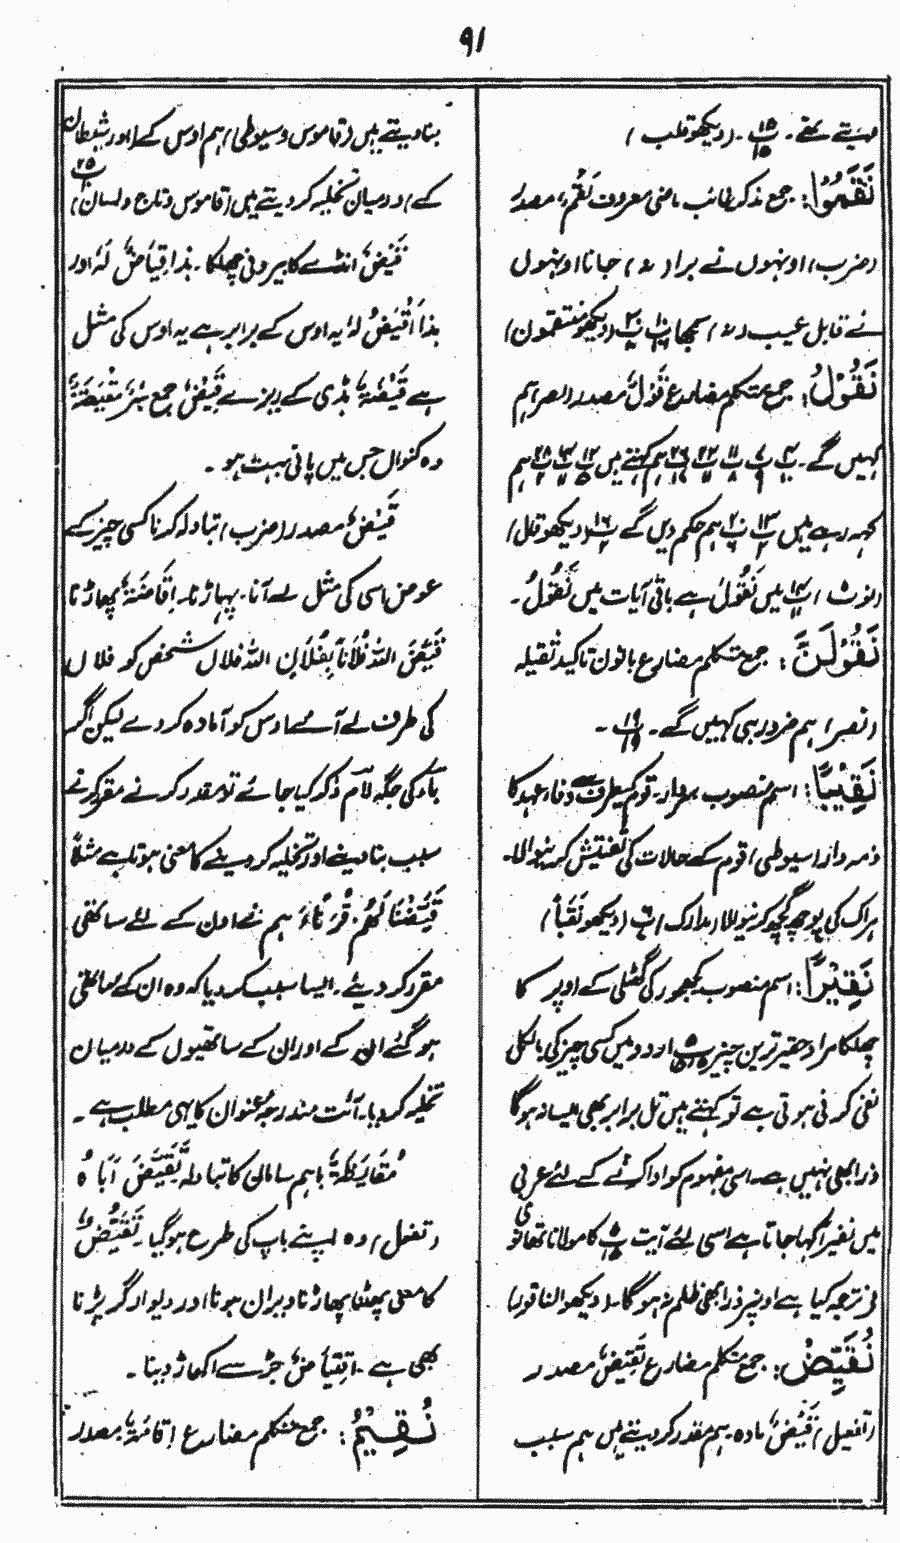 ۹۱
مہیتے تھے ۔ ۱۵ پ ۱۵ ۔ (دیکھو قلب)
نَقَمُوْا: جمع مذکر غائب ماضی معروف نَقْم، مصدر
(ضرب) اونہوں نے برا (دیکھا) جانا اونہوں
نے قابل عیب سمجھا (دیکھو منتقمون)
نَقُوْلُ: جمع متکلم مضارع قَوْلٌ مصدر (نصر) ہم
کہیں گے۔ ہم کہتے ہیں ہم
کہہ رہے ہیں ہم حکم دیں گے (دیکھو قلل)
(نوٹ) میں نَقُوْلُ ہے باقی آیات میں نَقُوْلُ۔
نَقُوْلَنَّ: جمع متکلم مضارع بانون تاکید ثقیلہ
(نصر) ہم ضرور ہی کہیں گے۔ ۱۹ پ ۱۹ ۔
نَقِیْبًا: اسم منصوب سردار۔ قوم کیطرف سے وفاء عہد کا
ذمہ دار (سیوطی) قوم کے حالات کی تفتیش کرنیوالا۔
ہر اک کی پوچھ گچھ کرنیوالا (مدارک) پ (دیکھو نَقَبًا)
نَقِیْرًا: اسم منصوب کھجور کی گٹھلی کے اوپر کا
چھلکا مراد حقیر ترین چیز اردو میں کسی چیز کی بالکل
نفی کرنی ہوتی ہے تو کہتے ہیں تل برابر بھی ایسا نہ ہوگا
ذرا بھی نہیں ہے۔ اسی مفہوم کو ادا کرنے کے لئے عربی
میں نقیراً کہا جاتا ہے اسی لئے آیت کا مولانا تھانوی
نے ترجمہ کیا ہے اونپر ذرا بھی ظلم نہ ہوگا۔ (دیکھو الناقور)
نُقَیِّضْ: جمع متکلم مضارع تَقْیِیْضٌ مصدر
(تفعیل) قَیْضٌ مادہ۔ ہم مقدر کر دیتے ہیں ہم سبب
بنا دیتے ہیں (قاموس و سیوطی) ہم اوس کے اور شیطان
کے درمیان تخلیہ کر دیتے ہیں (قاموس و تاج و لسان) پ ۲۵
قَیْضٌ انڈے کا بیرونی چھلکا۔ ہٰذا قِیَاضٌ لَہٗ اور
ہٰذَا قَیْضٌ لہٗ یہ اوس کے برابر ہے یہ اوس کی مثل
ہے قَیْضَۃٌ ہڈی کے ریزے قَیْضٌ جمع بِئْرٌ مَقِیْضَۃٌ
وہ کنواں جس میں پانی بہت ہو۔
قَیْضٌ مصدر (ضرب) تبادلہ کرنا کسی چیز کے
عوض اسی کی مثل لے آنا۔ پہاڑنا۔ اِقَاضَۃٌ پھاڑنا
قَیَّضَ اللہُ فُلَاناً بِفُلَانٍ اللہ فلاں شخص کو فلاں
کی طرف لے آئے اوس کو آمادہ کر دے لیکن اگر
باء کی جگہ لام ذکر کیا جائے تو مقدر کرنے مقرر کرنے
سبب بنا دینے اور تخلیہ کر دینے کا معنی ہوتا ہے مثلاً
قَیَّضْنَا لَھُمْ قُرَنَاءَ ہم نے اون کے لئے ساتھی
مقرر کر دیئے۔ ایسا سبب کر دیا کہ وہ ان کے ساتھی
ہو گئے ان کے اور ان کے ساتھیوں کے درمیان
تخلیہ کر دیا۔ آیت مندرجہ عنوان کا یہی مطلب ہے ۔
مُقَایَضَۃٌ باہم سامان کا تبادلہ تَقَیَّضَ اَبَاہُ
(تفعل) وہ اپنے باپ کی طرح ہو گیا۔ تَقَیُّضٌ
کا معنی پھٹنا پھاڑنا ویران ہونا اور دیوار گر پڑنا
بھی ہے۔ اِنْقِیَاضٌ جڑ سے اکھاڑ دینا ۔
نُقِیْمُ: جمع متکلم مضارع اِقَامَۃٌ مصدر